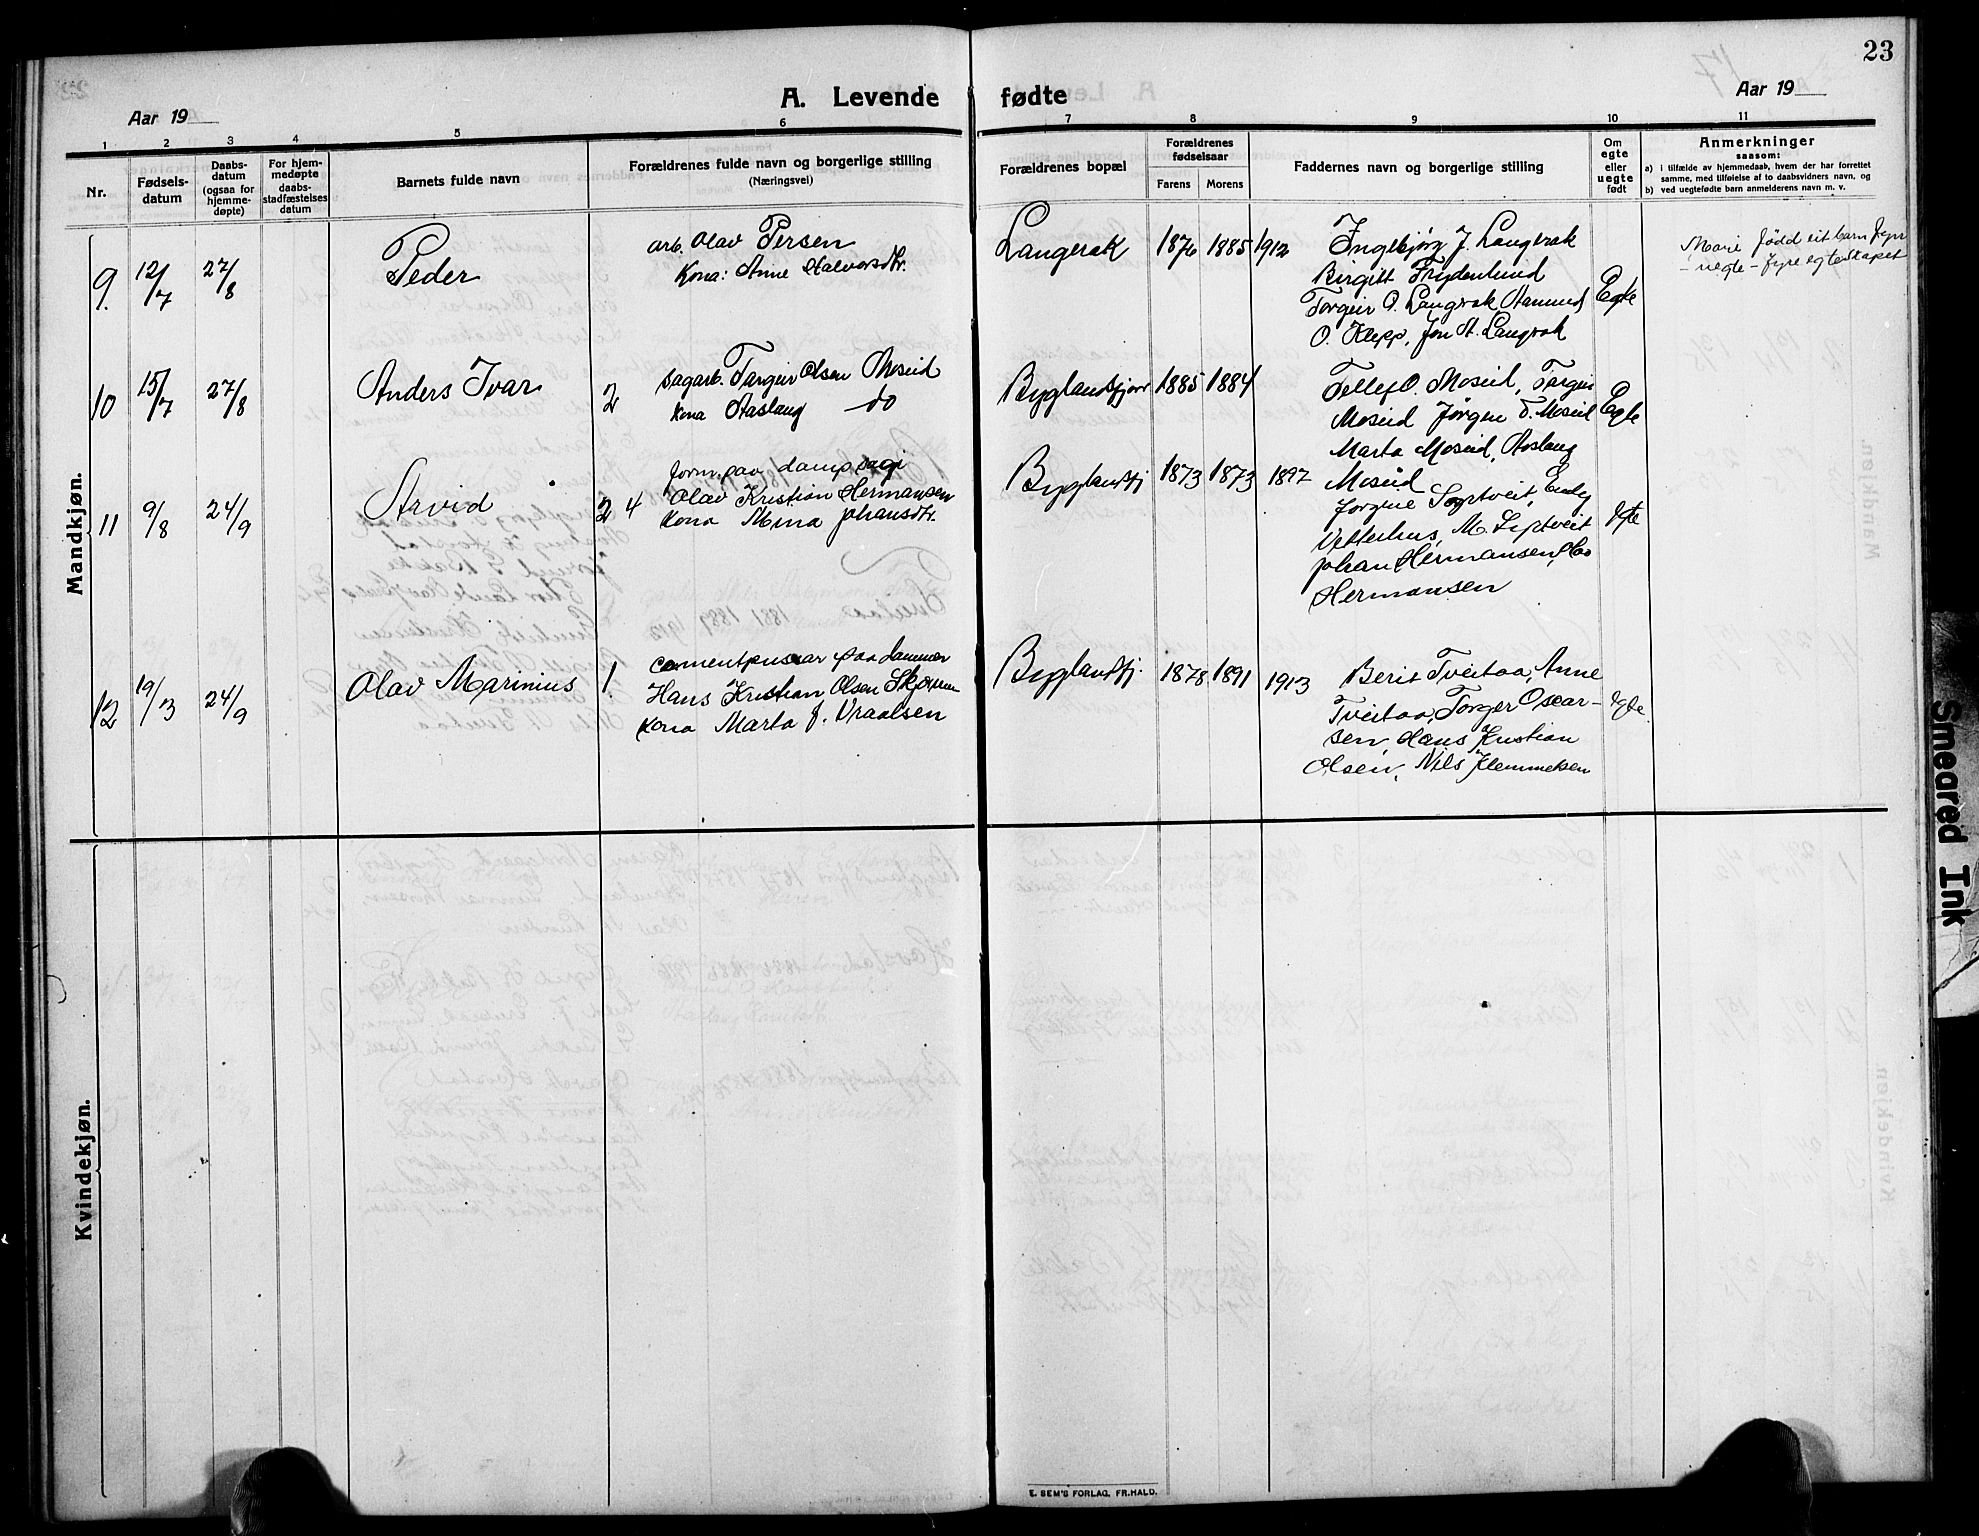 23
A. Levende fødte
Aar 19
Aar 19
1 2 3 4 5 6 7 8 9 10 11
Nr.
Fødsels-
datum
Daabs-
datum
(ogsaa for
hjemme-
døpte)
For hjem-
medøpte
daabs-
stadfæstelses
datum
Barnets fulde navn
Forældrenes fulde navn og borgerlige stilling
(Næringsvei)
Forældrenes bopæl
Forældrenes
fødselsaar
Farens Morens
Faddernes navn og borgerlige stilling
Om
egte
eller
uegte
født
Anmerkninger
saasom:
a) i tilfælde av hjemmedaab, hvem der har forrettet
samme, med tilføielse af to daabsvidners navn, og
b) ved uegtefødte barn anmelderens navn m. v.
Mandkjøn.
9. 12/7 27/8 Peder
arb. Olav Persen
Kona: Anne Halvorsdtr.
Langerak 1876 1885 1912
Ingebjørg J. Langerak
Birgitt Frydenlund
Torgeir O. Langrak, Aamund
O. Klepp, Jon A. Langrak
Egte
Marie fødd eit barn
- uegte - fyre egteskapet
10 15/7 27/8 Anders Ivar 2
sagarb. Targeir Olsen Moseid
kona Aaslaug do
Byglandsfjord 1885 1884
Tellef O. Moseid, Torgeir
Moseid Jørgen T. Moseid
Marta Moseid, Aaslaug
Moseid
Egte
11 9/8 24/9 Arvid 2 4
form. paa dampsagi
Olav Kristian Hermansen
kona Mina Johansdtr.
Byglandsfj 1873 1873 1897
Jorgine
Vetterhus, M.
Johan Hermansen,
Hermansen
Egte
12 19/3 24/9 Olav Marinius 1.
cementpussar paa dammen
Hans Kristian Olsen
kona Marta J. Vraalsen
Byglandsfj. 1878 1891 1913
Berit Tveitaa, Anne
Tveitaa, Torger Oscar-
sen, Hans Kristian
Olsen, Nils Klemmetsen
Egte.
Kvindekjøn.
E. SEM'S FORLAG, FR.HALD.
Smeared Ink